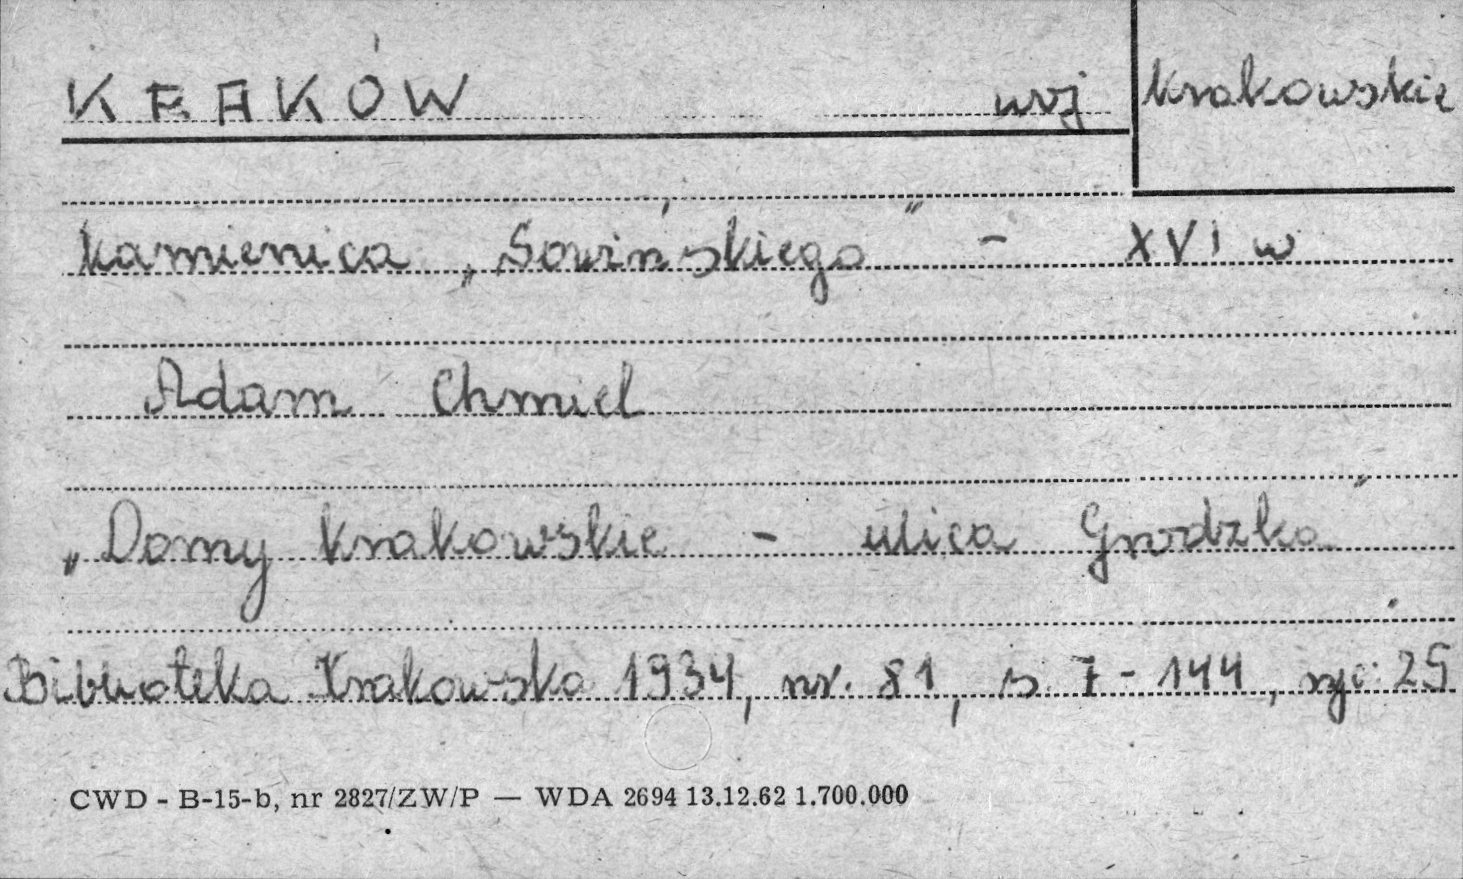 KRAKÓW woj krakowskie
kamienica „Sowińskiego" - XVI w
Adam Chmiel
„Domy krakowskie - ulica Grodzka"
Biblioteka Krakowska 1934, nr. 81, s. 7-144, ryc. 25
CWD - B-15-b, nr 2827/ZW/P — WDA 2694 13.12.62 1.700.000